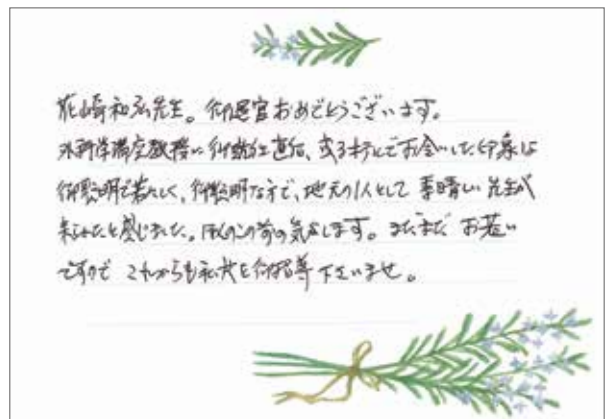 花崎和弘先生。御退官おめでとうございます。
外科学講座教授に御就任直後、或るホテルでお会いした印象は
御聡明で若々しく、御聡明な方で、地元の1人として素晴しい先生が
来られたと感じました。ほんの この前の気がします。まだまだ お若い
ですので これからも私共を御指導下さいませ。